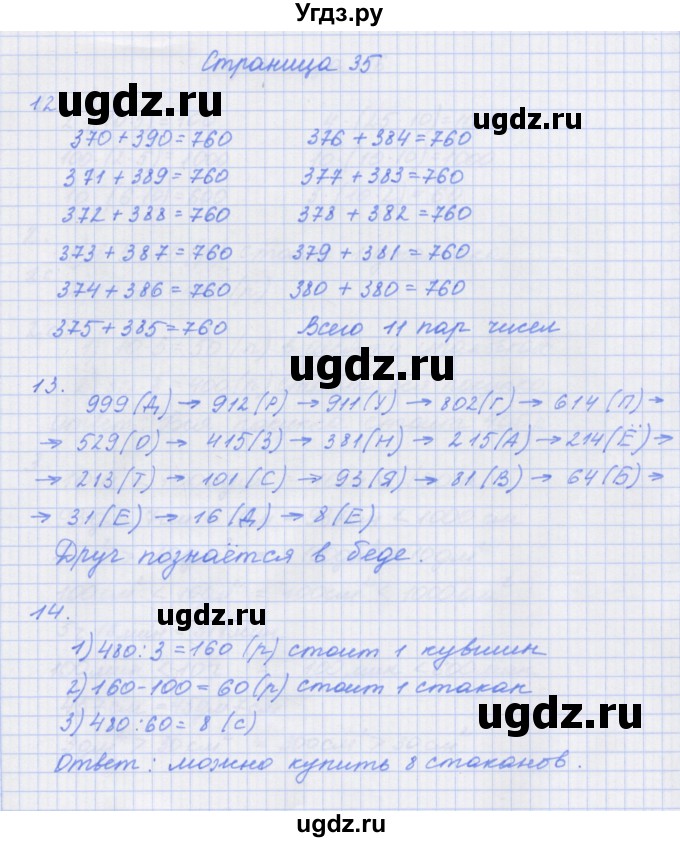 Угдз.ру
Страница 35
12
ugdz.ru
ugdz.ru
370 + 390 = 760 376 + 384 = 760
371 + 389 = 760 377 + 383 = 760
372 + 388 = 760 378 + 382 = 760
373 + 387 = 760 379 + 381 = 760
374 + 386 = 760 380 + 380 = 760
375 + 385 = 760 Всего 11 пар чисел
ugdz.ru
13.
999 (Д) → 912 (Р) → 911 (У) → 802 (Г) → 614 (П) →
→ 529 (О) → 415 (З) → 381 (Н) → 215 (А) → 214 (Ё) →
→ 213 (Т) → 101 (С) → 93 (Я) → 81 (В) → 64 (Б) →
→ 31 (Е) → 16 (Д) → 8 (Е)
Друг познаётся в беде.
14.
ugdz.ru
1) 480 : 3 = 160 (р) стоит 1 кувшин
2) 160 - 100 = 60 (р) стоит 1 стакан
3) 480 : 60 = 8 (с)
ugdz.ru
Ответ : можно купить 8 стаканов.
ugdz.ru